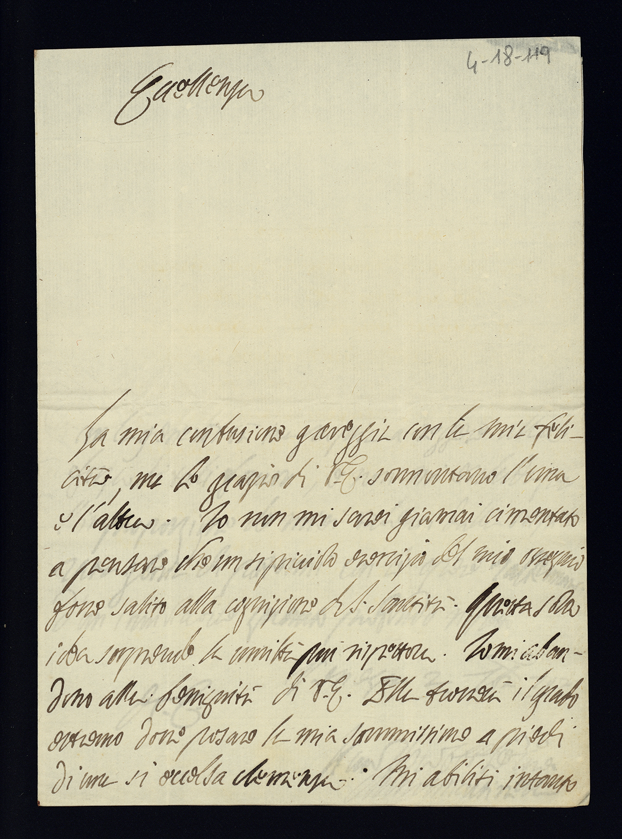 4-18-119
Eccellenza
La mia confusione gareggia con la mia feli-
cità, ma le grazie di V.E. sormontano l'una
e l'altra. Io non mi sarei giammai cimentato
a pensare che un sì piccolo esercizio del mio ossequio
fosse salito alla cognizione di S. Santità. Questa sola
idea sorprende la umiltà più rispettosa. Io mi aban-
dono alla benignità di V.E. Ella troverà il grado
estremo dove posare la mia sommissione a piedi
di una sì eccelsa clemenza. Mi abiliti intanto